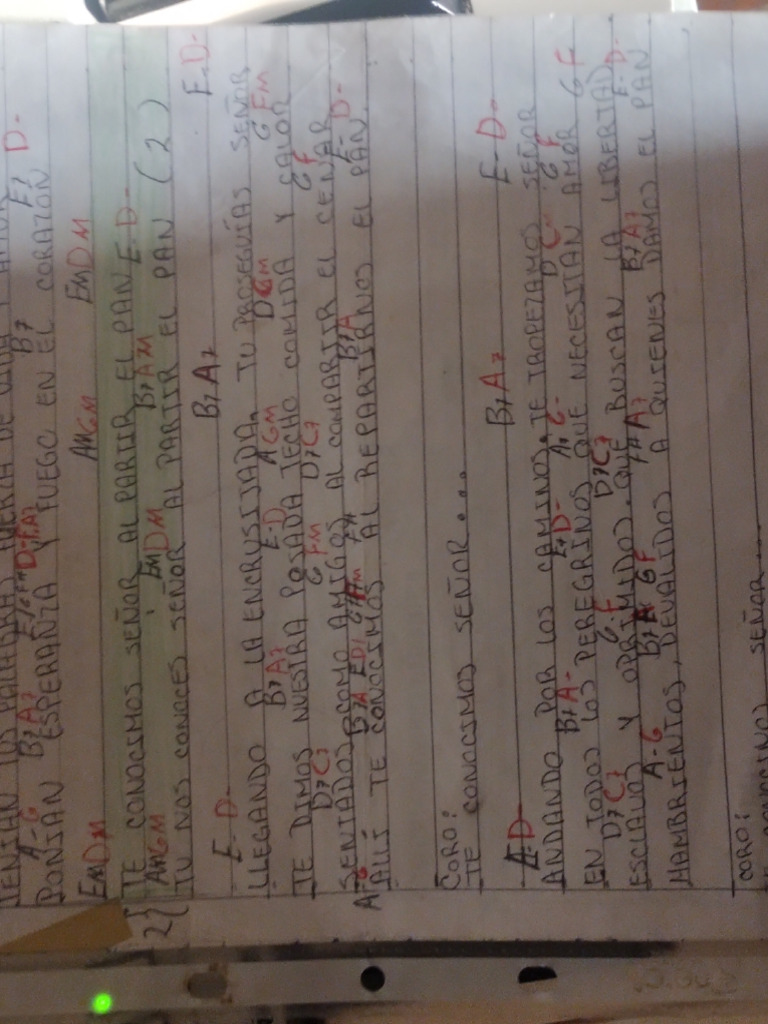 TENÍAN TUS PALABRAS FUERZA DE
A-G B7 A7 D- B7 E7 D-
PONÍAN ESPERANZA Y FUEGO EN EL CORAZÓN
EmDM AmGM EmDM
TE CONOCIMOS SEÑOR AL PARTIR EL PAN E- D-
AmGM EmDM B7A7M
2{ TU NOS CONOCES SEÑOR AL PARTIR EL PAN (2)
E- D- B7A7 E-D-
LLEGANDO A LA ENCRUSIJADA, TU PROSEGUÍAS SEÑOR
B7A7 E-D AGM DGM G Fm
TE DIMOS NUESTRA POSADA TECHO COMIDA Y CALOR
D7C7 G Fm D7C7 G F
SENTADOS COMO AMIGOS AL COMPARTIR EL CENAR
B7A E- D-
ALLÍ TE CONOCIMOS AL REPARTIRNOS EL PAN.
CORO:
TE CONOCIMOS SEÑOR....
E-D- B7A7 E-D-
ANDANDO POR LOS CAMINOS, TE TROPEZAMOS SEÑOR
B7A- E7D- A7G- D C- G F
EN TODOS LOS PEREGRINOS QUE NECESITAN AMOR G F
D7C7 G-F D7C7
ESCLAVOS Y OPRIMIDOS. QUE BUSCAN LA LIBERTAD
A-G B7A G F F#A7 B7A7 E-D-
HAMBRIENTOS, DEVALIDOS A QUIENES DAMOS EL PAN
CORO:
TE CONOCIMOS SEÑOR...